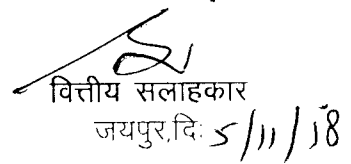 वित्तीय सलाहकार
जयपुर,दिः 5/11/18